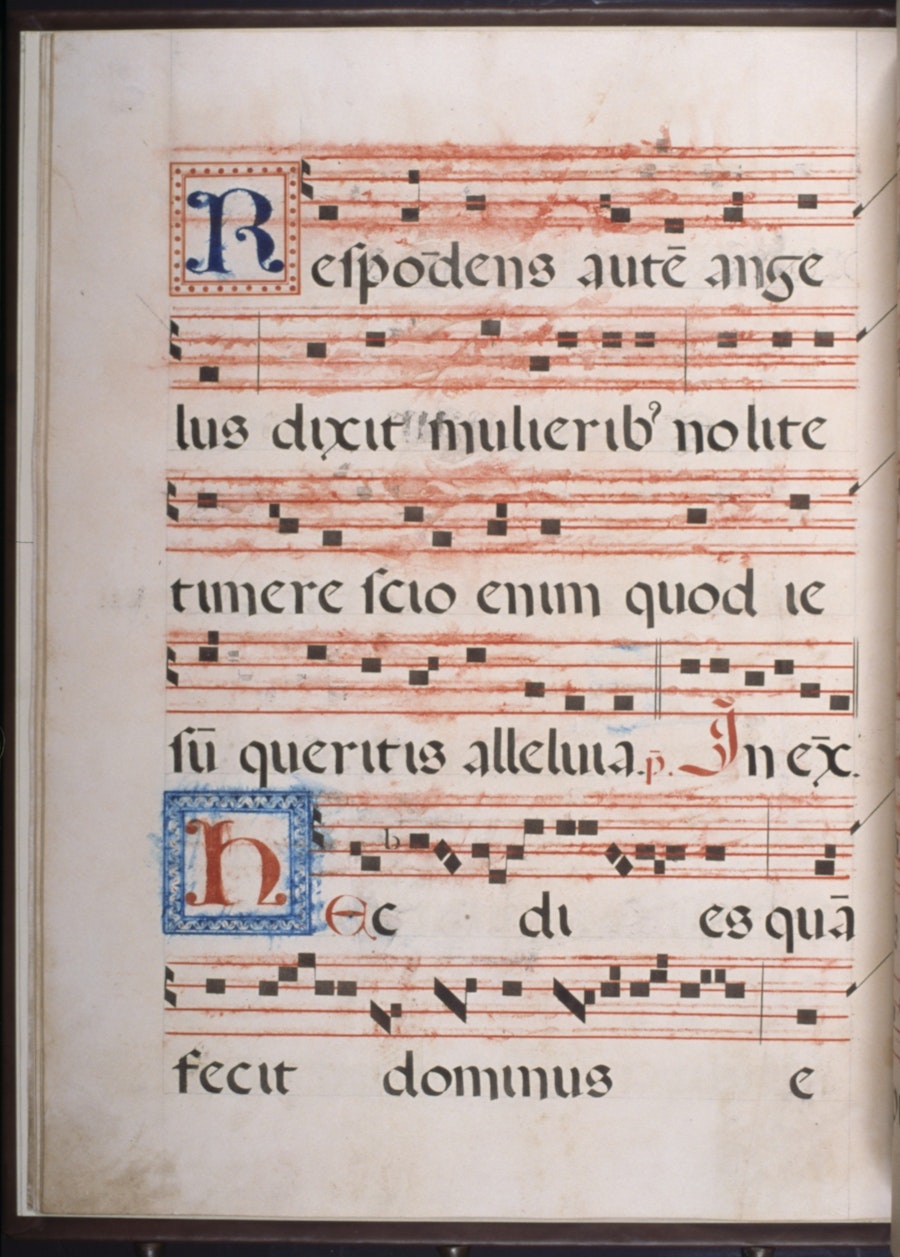 Reſpōdens autē ange
lus dixit mulierib⁹ nolite
timere ſcio enim quod ie
ſū queritis alleluia. p̄. In ex̄.
Hec di es quā
fecit dominus e